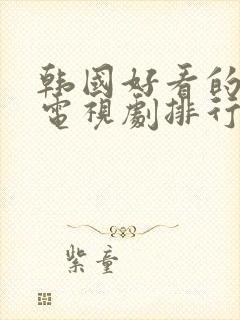 韩國好看的
電視劇排行
紫童